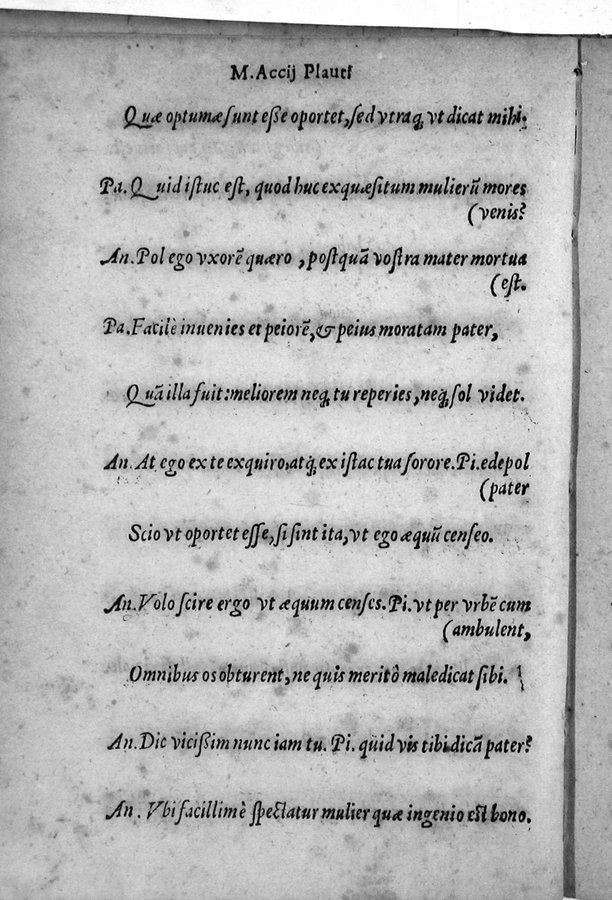 M. Accij Plauti
Quæ optumæ ſunt eſſe oportet, ſed vtraq; vt dicat mihi.
Pa. Quid iſtuc eſt, quod huc exquæſitum mulierũ mores
(venis?
An. Pol ego vxorẽ quæro, poſtquã voſtra mater mortua
(eſt.
Pa. Facilè inuenies et peiorẽ, & peius moratam pater,
Quã illa fuit: meliorem neq; tu reperies, neq; ſol videt.
An. At ego ex te exquiro, atq; ex iſtac tua ſorore. Pi. edepol
(pater
Scio vt oportet eſſe, ſi ſint ita, vt ego æquũ cenſeo.
An. Volo ſcire ergo vt æquum cenſes. Pi. vt per vrbẽ cum
(ambulent,
Omnibus os obturent, ne quis meritò maledicat ſibi.
An. Dic viciſſim nunc iam tu. Pi. quid vis tibi dicã pater?
An. Vbi facillimè ſpectatur mulier quæ ingenio eſt bono.